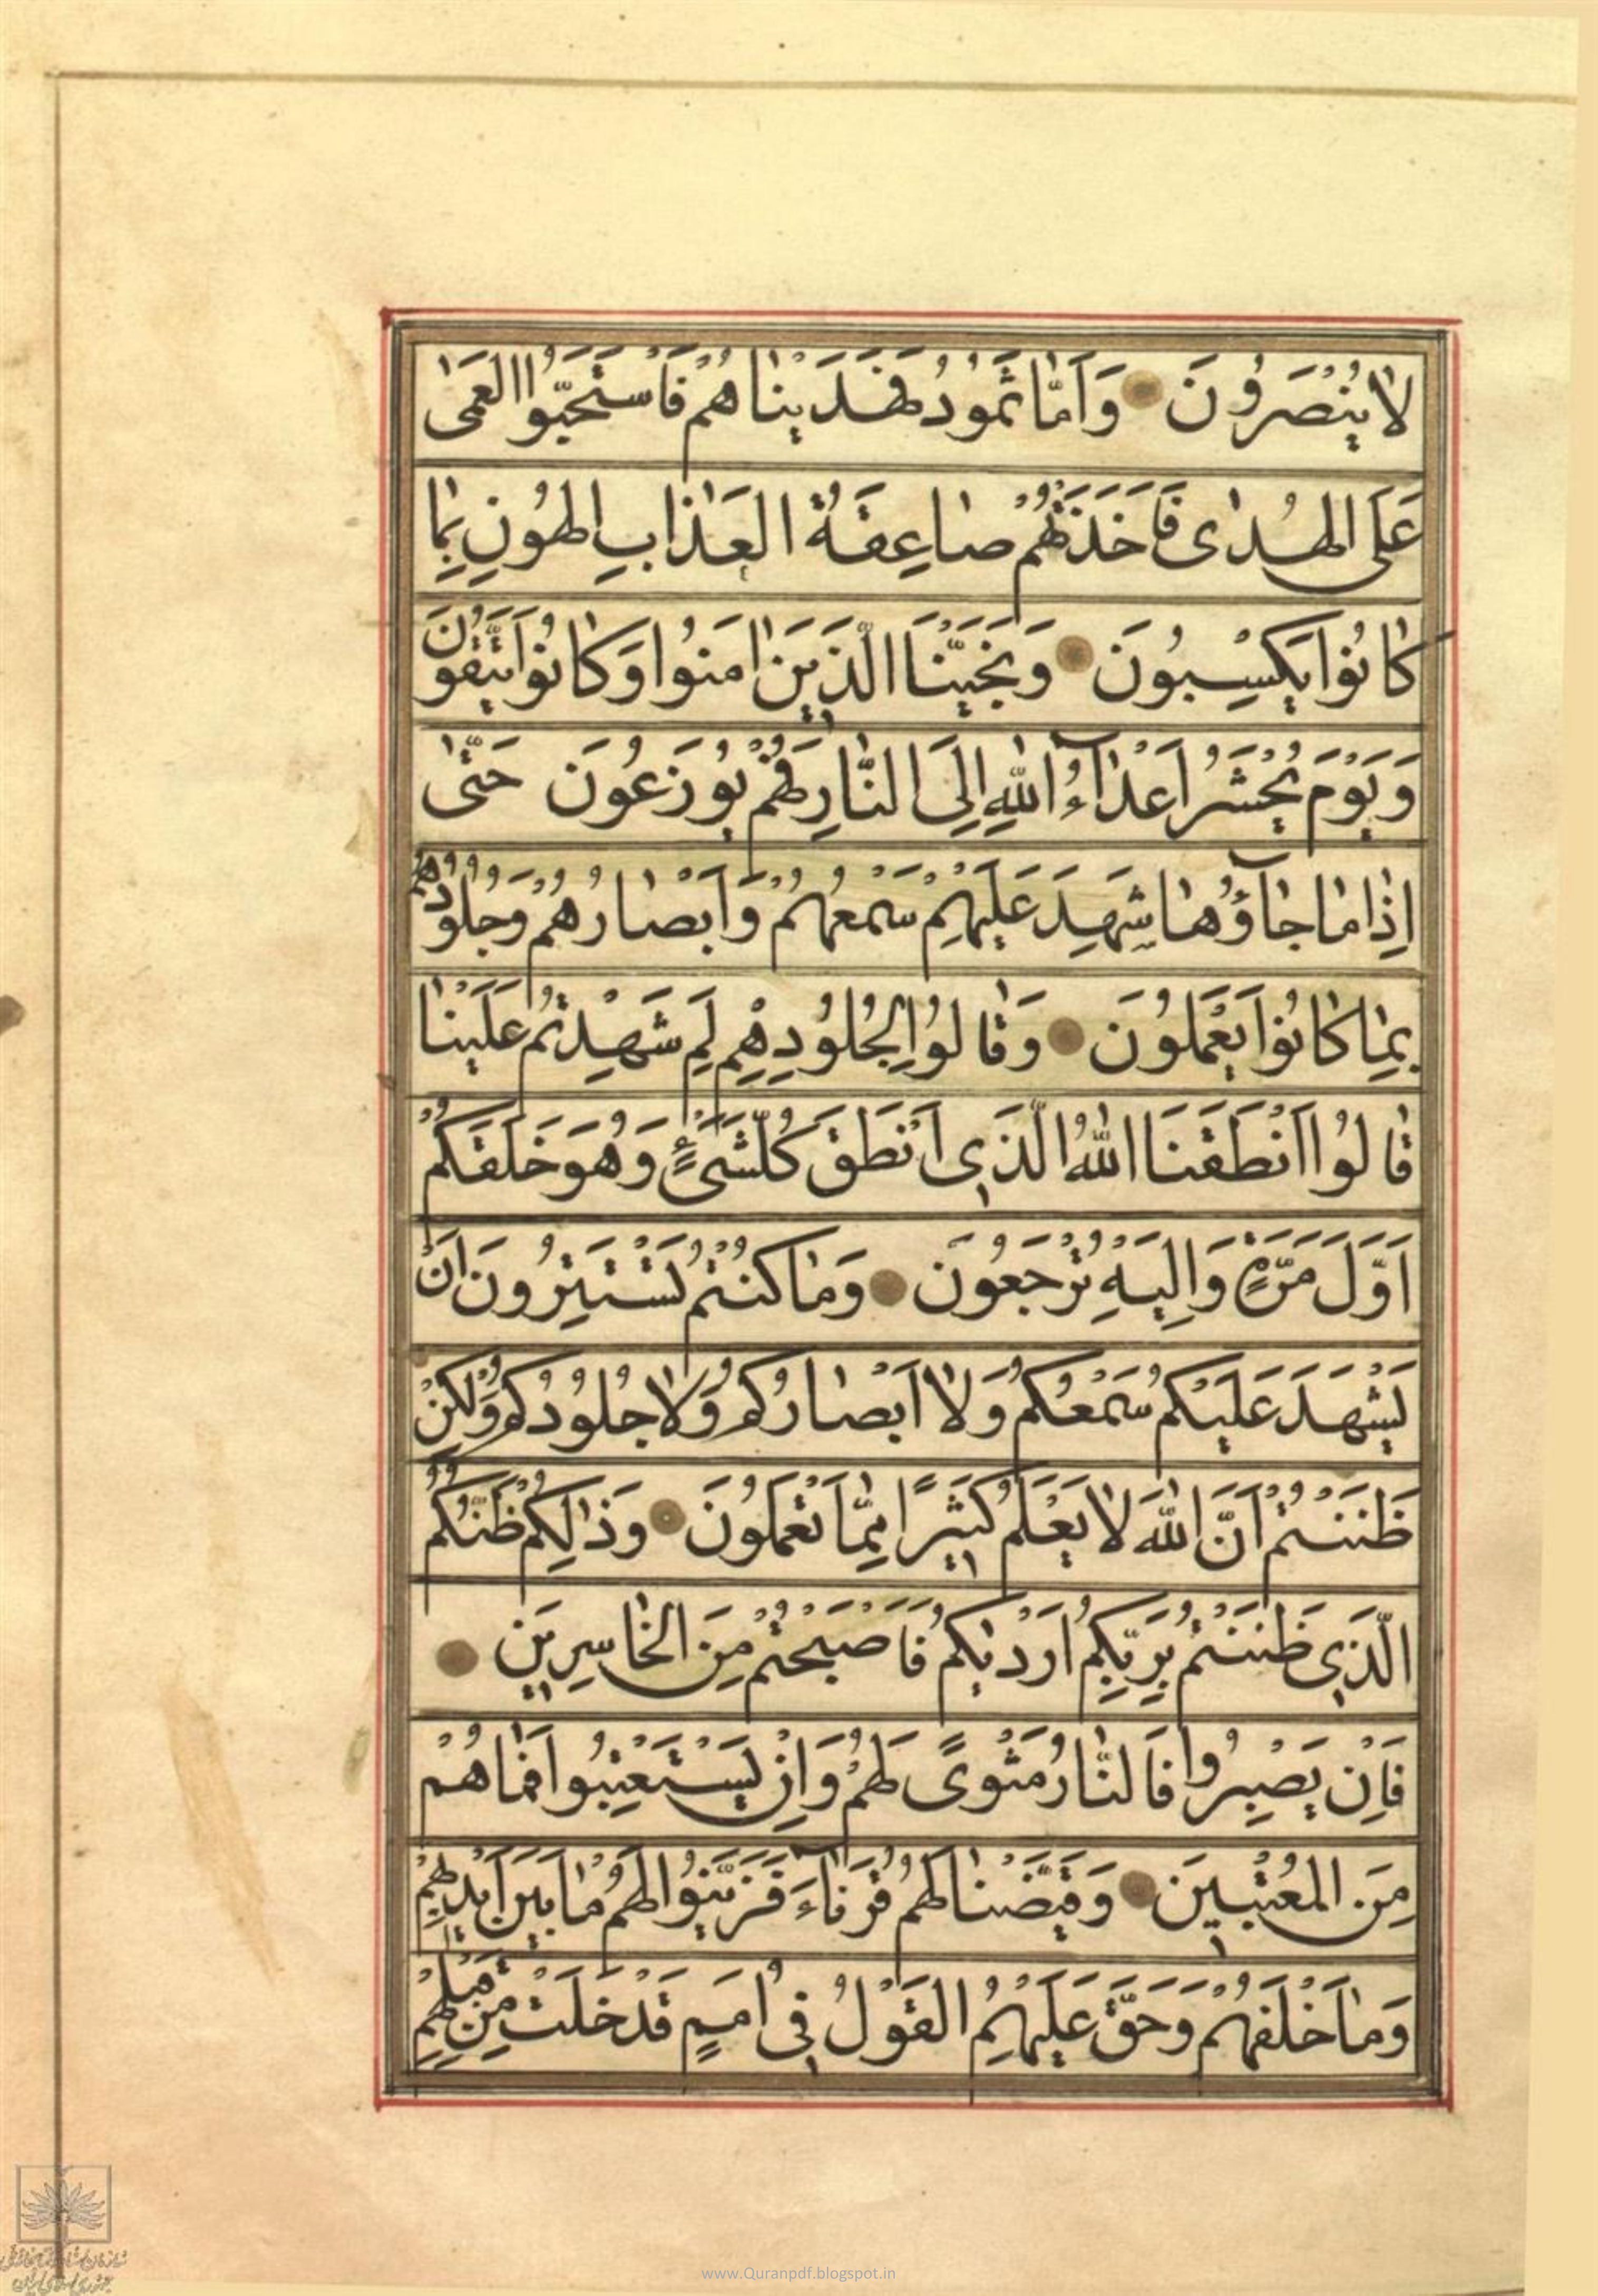 لاٰ يُنْصَرُونَ وَاَمّٰا ثَمُودُ فَهَدَيْنٰاهُمْ فَاسْتَحَبُّوا الْعَمٰى
عَلَى الْهُدٰى فَاَخَذَتْهُمْ صٰاعِقَةُ الْعَذٰابِ الْهُونِ بِمٰا
كٰانُوا يَكْسِبُونَ وَنَجَّيْنَا الَّذِينَ اٰمَنُوا وَكٰانُوا يَتَّقُونَ
وَيَوْمَ يُحْشَرُ اَعْدٰٓاءُ اللّٰهِ اِلَى النّٰارِ فَهُمْ يُوزَعُونَ حَتّٰى
اِذٰا مٰا جٰٓاؤُهٰا شَهِدَ عَلَيْهِمْ سَمْعُهُمْ وَاَبْصٰارُهُمْ وَجُلُودُهُمْ
بِمٰا كٰانُوا يَعْمَلُونَ وَقٰالُوا لِجُلُودِهِمْ لِمَ شَهِدْتُمْ عَلَيْنٰا
قٰالُوا اَنْطَقَنَا اللّٰهُ الَّذِى اَنْطَقَ كُلَّ شَىْءٍ وَهُوَ خَلَقَكُمْ
اَوَّلَ مَرَّةٍ وَاِلَيْهِ تُرْجَعُونَ وَمٰا كُنْتُمْ تَسْتَتِرُونَ اَنْ
يَشْهَدَ عَلَيْكُمْ سَمْعُكُمْ وَلاٰ اَبْصٰارُكُمْ وَلاٰ جُلُودُكُمْ وَلٰكِنْ
ظَنَنْتُمْ اَنَّ اللّٰهَ لاٰ يَعْلَمُ كَثِيرًا مِمّٰا تَعْمَلُونَ وَذٰلِكُمْ ظَنُّكُمُ
الَّذِى ظَنَنْتُمْ بِرَبِّكُمْ اَرْدٰيكُمْ فَاَصْبَحْتُمْ مِنَ الْخٰاسِرِينَ
فَاِنْ يَصْبِرُوا فَالنّٰارُ مَثْوًى لَهُمْ وَاِنْ يَسْتَعْتِبُوا فَمٰا هُمْ
مِنَ الْمُعْتَبِينَ وَقَيَّضْنٰا لَهُمْ قُرَنٰٓاءَ فَزَيَّنُوا لَهُمْ مٰا بَيْنَ اَيْدِيهِمْ
وَمٰا خَلْفَهُمْ وَحَقَّ عَلَيْهِمُ الْقَوْلُ فِى اُمَمٍ قَدْ خَلَتْ مِنْ قَبْلِهِمْ
www.Quranpdf.blogspot.in